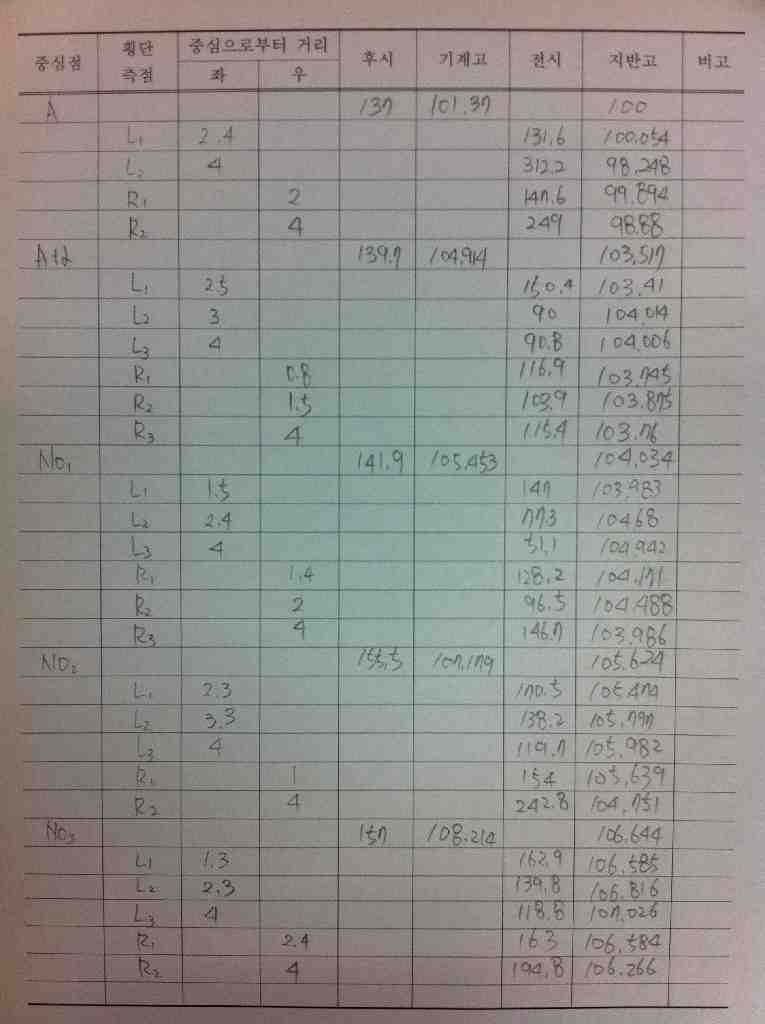 중심점 횡단 측점 중심으로부터 거리 좌 우 후시 기계고 전시 지반고 비고
A 137 101.37 100
L1 2.4 131.6 100.054
L2 4 312.2 98.248
R1 2 147.6 99.894
R2 4 249 98.88
A+2 139.7 104.914 103.517
L1 2.5 150.4 103.41
L2 3 90 104.014
L3 4 90.8 104.006
R1 0.8 116.9 103.745
R2 1.5 103.9 103.875
R3 4 115.4 103.76
No1 141.9 105.453 104.034
L1 1.5 147 103.983
L2 2.4 77.3 104.68
L3 4 51.1 104.942
R1 1.4 128.2 104.171
R2 2 96.5 104.488
R3 4 146.7 103.986
NO2 155.5 107.179 105.624
L1 2.3 170.5 105.474
L2 3.3 138.2 105.797
L3 4 119.7 105.982
R1 1 154 105.639
R2 4 242.8 104.751
NO3 157 108.214 106.644
L1 1.3 162.9 106.585
L2 2.3 139.8 106.816
L3 4 118.8 107.026
R1 2.4 163 106.584
R2 4 194.8 106.266